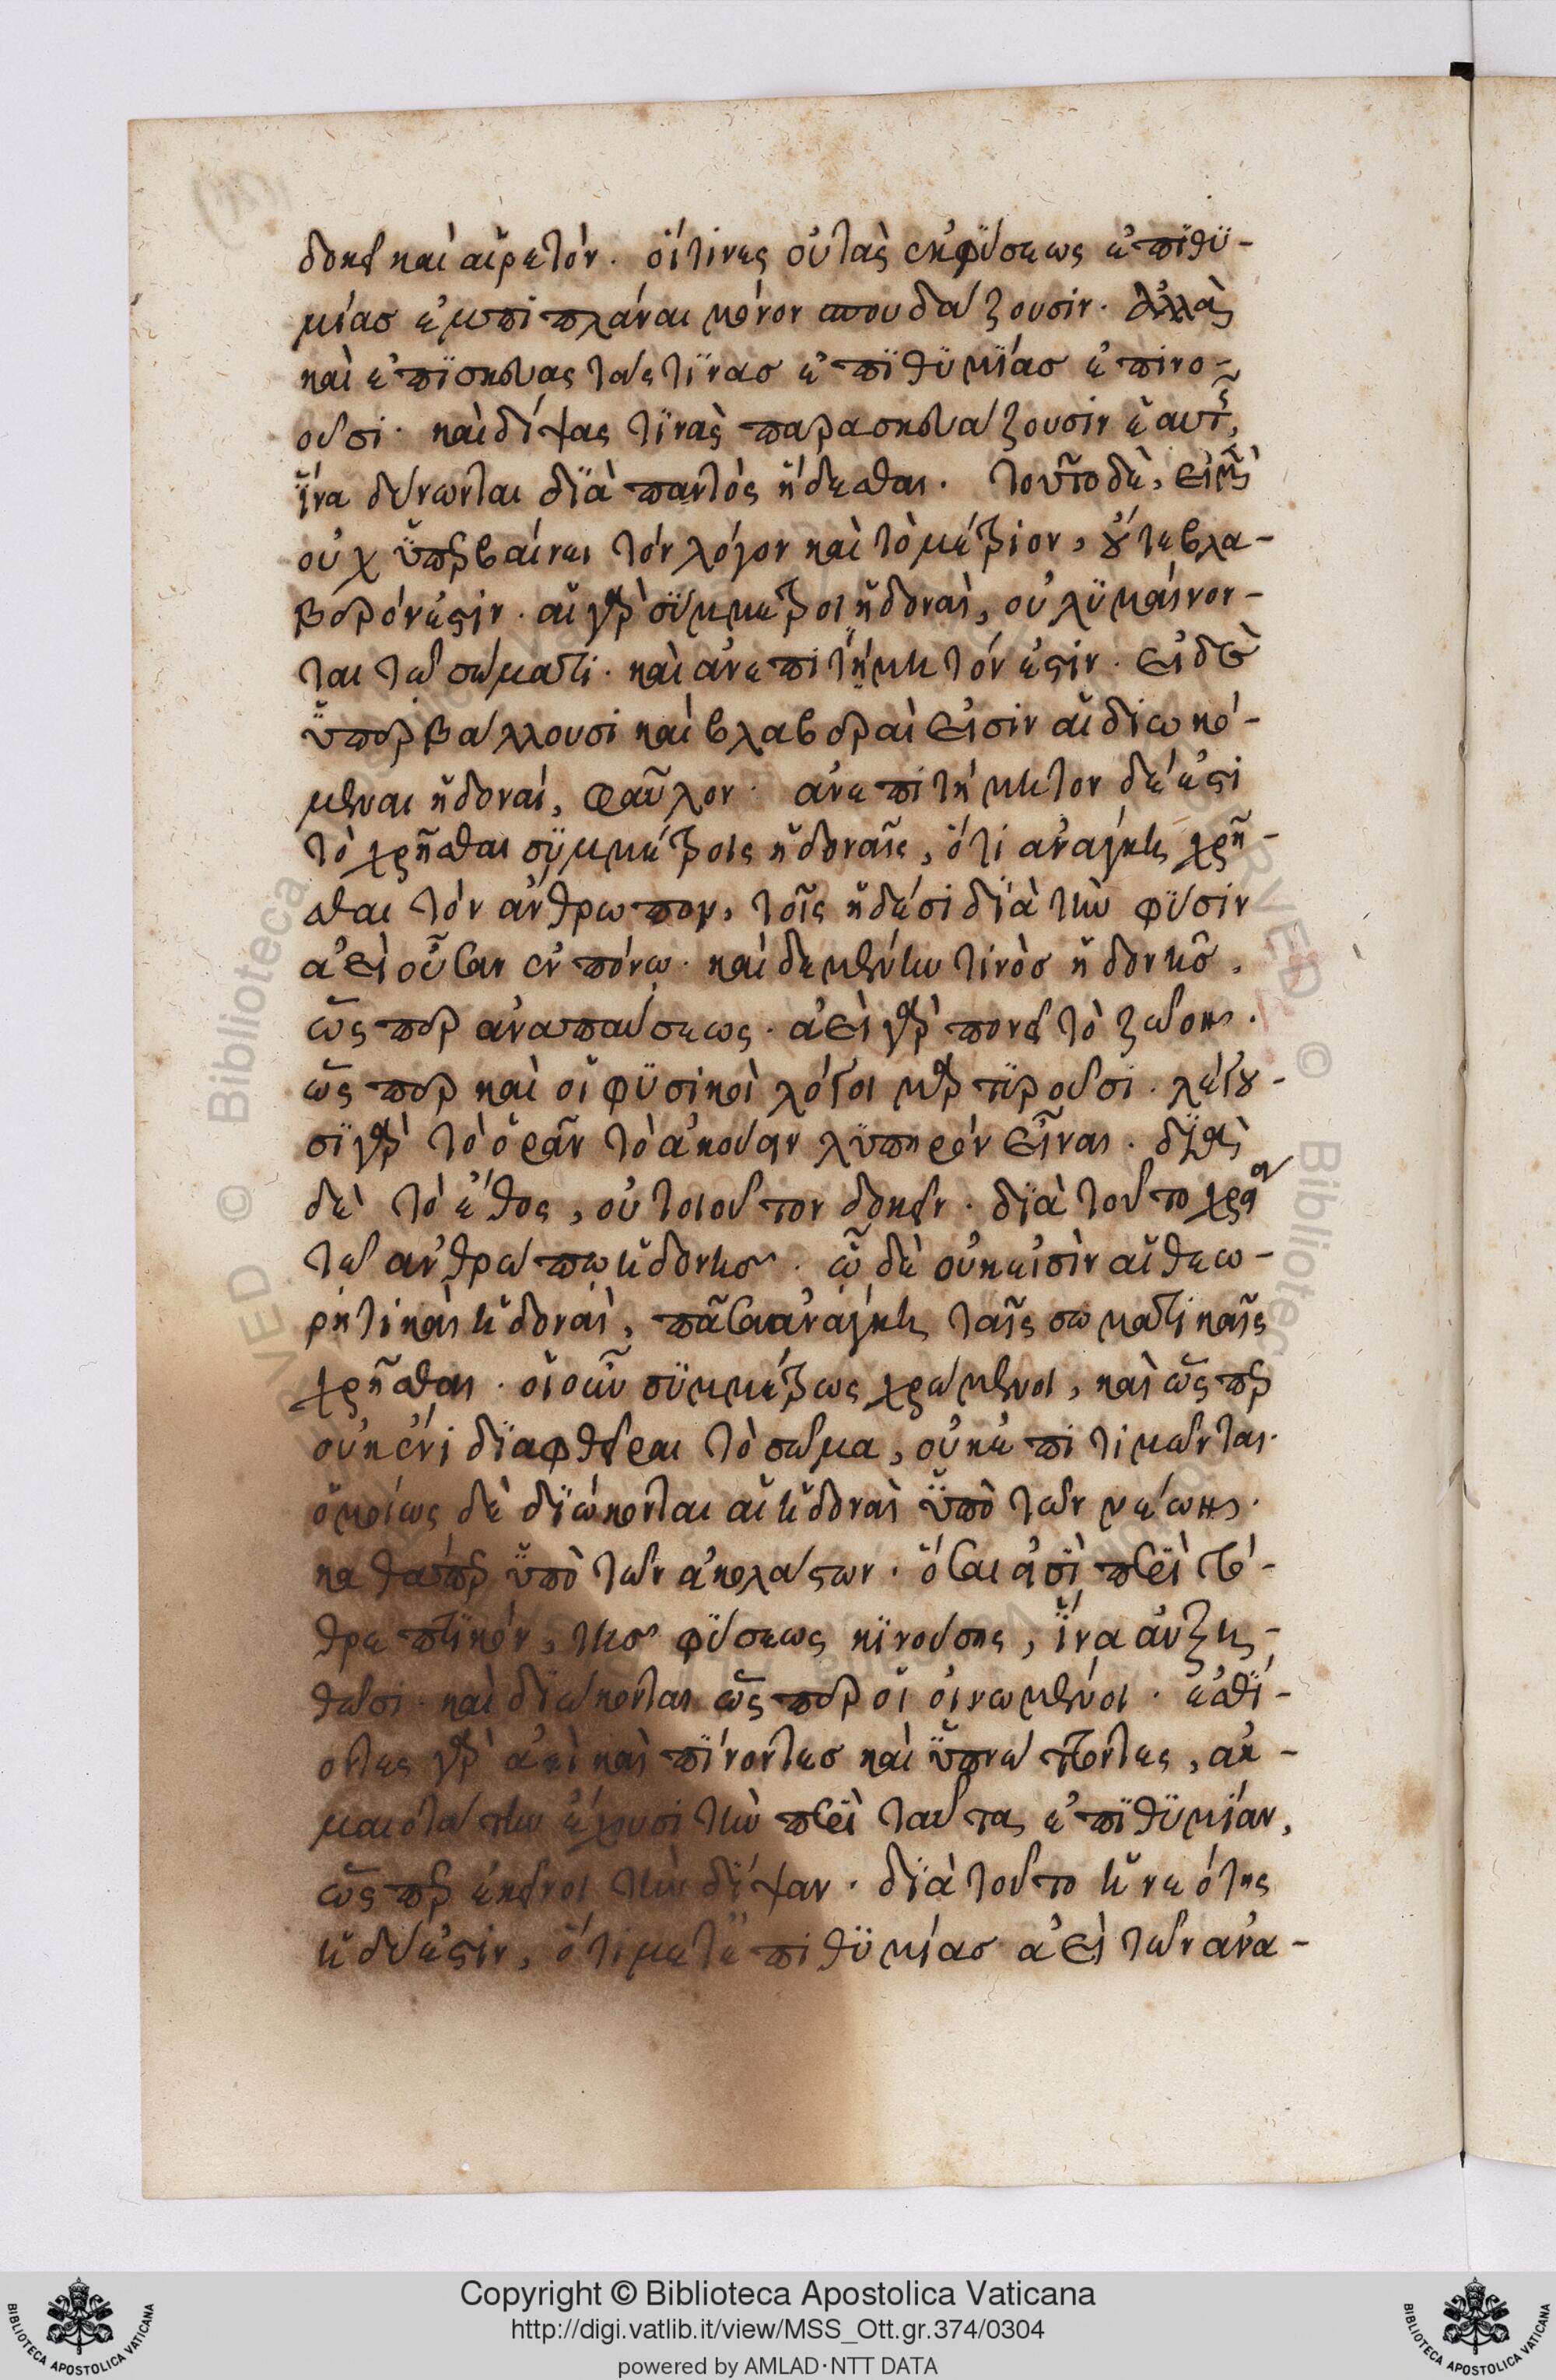 δοκεῖ καὶ αἱρετόν. οἵτινες οὐ τὰς ἐκ φύσεως ἐπιθυ-
μίας ἐμπιπλάναι μόνον σπουδάζουσιν. ἀλλὰ
καὶ ἐπισκευαστάς τινας ἐπιθυμίας ἐπινο-
οῦσι. καὶ δίψας τινὰς παρασκευάζουσιν ἑαυτοῖς,
ἵνα δύνωνται διὰ παντὸς ἥδεσθαι. τοῦτο δὲ, εἰ μὲν
οὐχ ὑπερβαίνει τὸν λόγον καὶ τὸ μέτριον, οὔτε βλα-
βερόν ἐστιν. αἱ γὰρ σύμμετροι ἡδοναὶ, οὐ λυμαίνον-
ται τῷ σώματι. καὶ ἀνεπιτίμητόν ἐστιν. εἰ δὲ
ὑπερβάλλουσι καὶ βλαβεραὶ εἰσιν αἱ διωκό-
μεναι ἡδοναί, φαῦλον. ἀνεπιτήμητον δέ ἐστι
τὸ χρῆσθαι συμμέτροις ἡδοναῖς, ὅτι ἀνάγκη χρῆ-
σθαι τὸν ἄνθρωπον, τοῖς ἡδέσι διὰ τὴν φύσιν
ἀεὶ οὖσαν ἐν πόνῳ. καὶ δεμένην τινὸς ἡδονῆς,
ὥσπερ ἀναπαύσεως. ἀεὶ γὰρ πονεῖ τὸ ζῶον.
ὥσπερ καὶ οἱ φυσικοὶ λόγοι μαρτυροῦσι. λέγου-
σι γὰρ τὸ ὁρᾶν τὸ ἀκούειν λυπηρὸν εἶναι. διὰ
δὲ τὸ ἔθος, οὐ τοιοῦτον δοκεῖν. διὰ τοῦτο χρεία
τῷ ἀνθρώπῳ ἡδονῆς. ᾧ δὲ οὐκ εἰσὶν αἱ θεω-
ρητικαὶ ἡδοναὶ, πᾶσα ἀνάγκη ταῖς σωματικαῖς
χρῆσθαι. οἱ οὖν συμμέτρως χρώμενοι, καὶ ὥσπερ
οὐκ ἔνι διαφθεῖραι τὸ σῶμα, οὐκ ἐπιτιμῶνται.
ὁμοίως δὲ διώκονται αἱ ἡδοναὶ ὑπὸ τῶν νέων.
καθάπερ ὑπὸ τῶν ἀκολάστων. ὅσαι εἰσὶ περὶ τὸ
θρεπτικόν, τῆς φύσεως κινούσης, ἵνα αὐξη-
θῶσι. καὶ διώκονται ὥσπερ οἱ οἰνωμένοι. ἐσθί-
οντες γὰρ ἀεὶ καὶ πίνοντες καὶ ὑπνώττοντες, ἀκ-
μαιοτάτην ἔχουσι τὴν περὶ ταῦτα ἐπιθυμίαν,
ὥσπερ ἐκεῖνοι τὴν δίψαν. διὰ τοῦτο ἡ νεότης
ἡδύ ἐστιν, ὅτι μετ' ἐπιθυμίας ἀεὶ τῶν ἀνα-
Copyright © Biblioteca Apostolica Vaticana
http://digi.vatlib.it/view/MSS_Ott.gr.374/0304
powered by AMLAD·NTT DATA
BIBLIOTECA APOSTOLICA VATICANA
BIBLIOTECA APOSTOLICA VATICANA